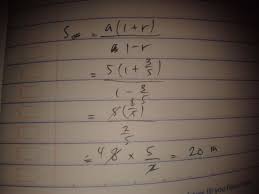 S∞ = a(1+r)
a 1-r
= 5(1+3/5)
1 - 3/5
= 5(8/5)
2/5
= 4 8 × 5/2 = 20 m